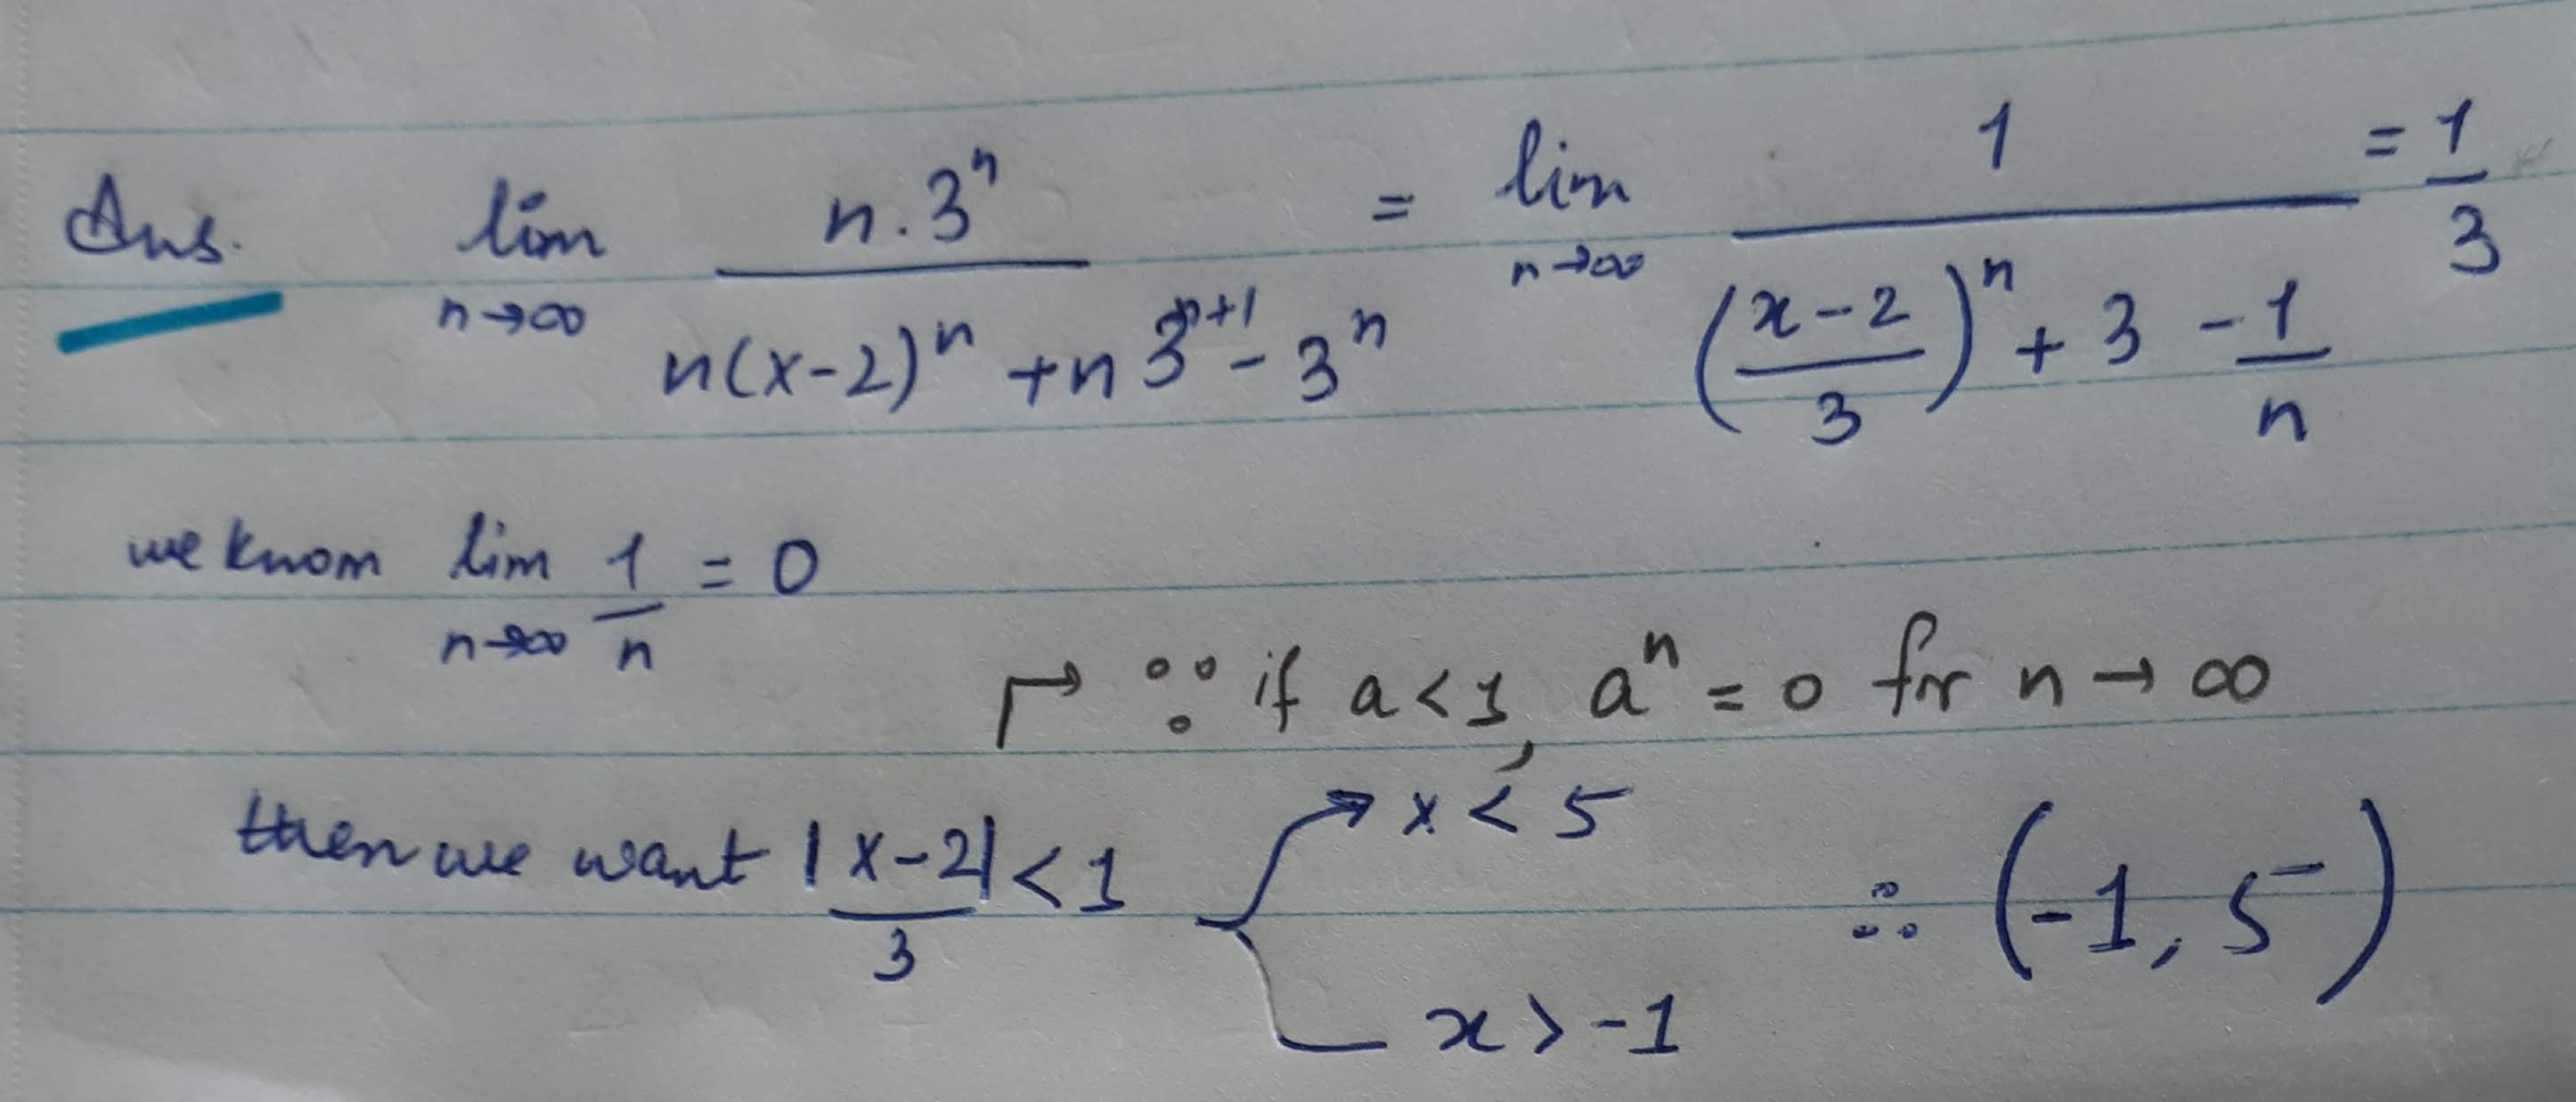 Ans. lim n→∞ n.3ⁿ / n(x-2)ⁿ + n 3ⁿ⁺¹ - 3ⁿ = lim n→∞ 1 / ((x-2)/3)ⁿ + 3 - 1/n = 1/3
we know lim n→∞ 1/n = 0
↱ ∵ if a<1, aⁿ = 0 for n → ∞
then we want |x-2|/3 < 1 → x < 5
x > -1
∴ (-1, 5)